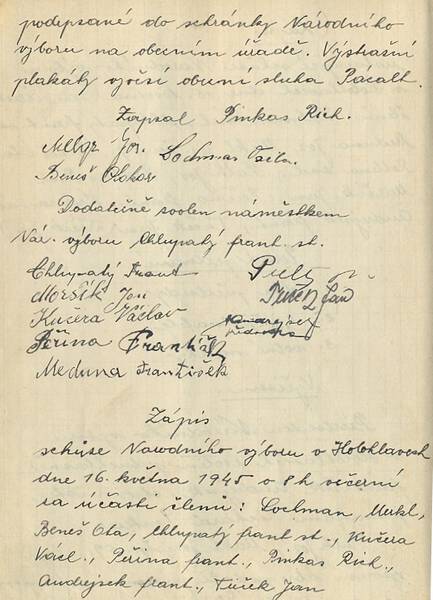 podepsané do schránky Národního
výboru na obecním úřadě. Výstrašní
plakáty vyvěsí obecní sluha Pácalt.
Zapsal Pinkas Rich.
Jos. Lochman
Beneš Otokar
Dodatečně zvolen náměstkem
Nár. výboru Chlupatý Frant. st.
Chlupatý Frant
Jos
Kučera Václav
Tuček Jan
Peřina František
Meduna František
Zápis
schůze Narodního výboru v Holohlavech
dne 16. května 1945 o 8 h večerní
za účasti členů: Lochman, Merkl,
Beneš Ota, Chlupatý frant st., Kučera
Václ., Peřina frant., Pinkas Rich.,
Andrejsek frant., Tuček Jan